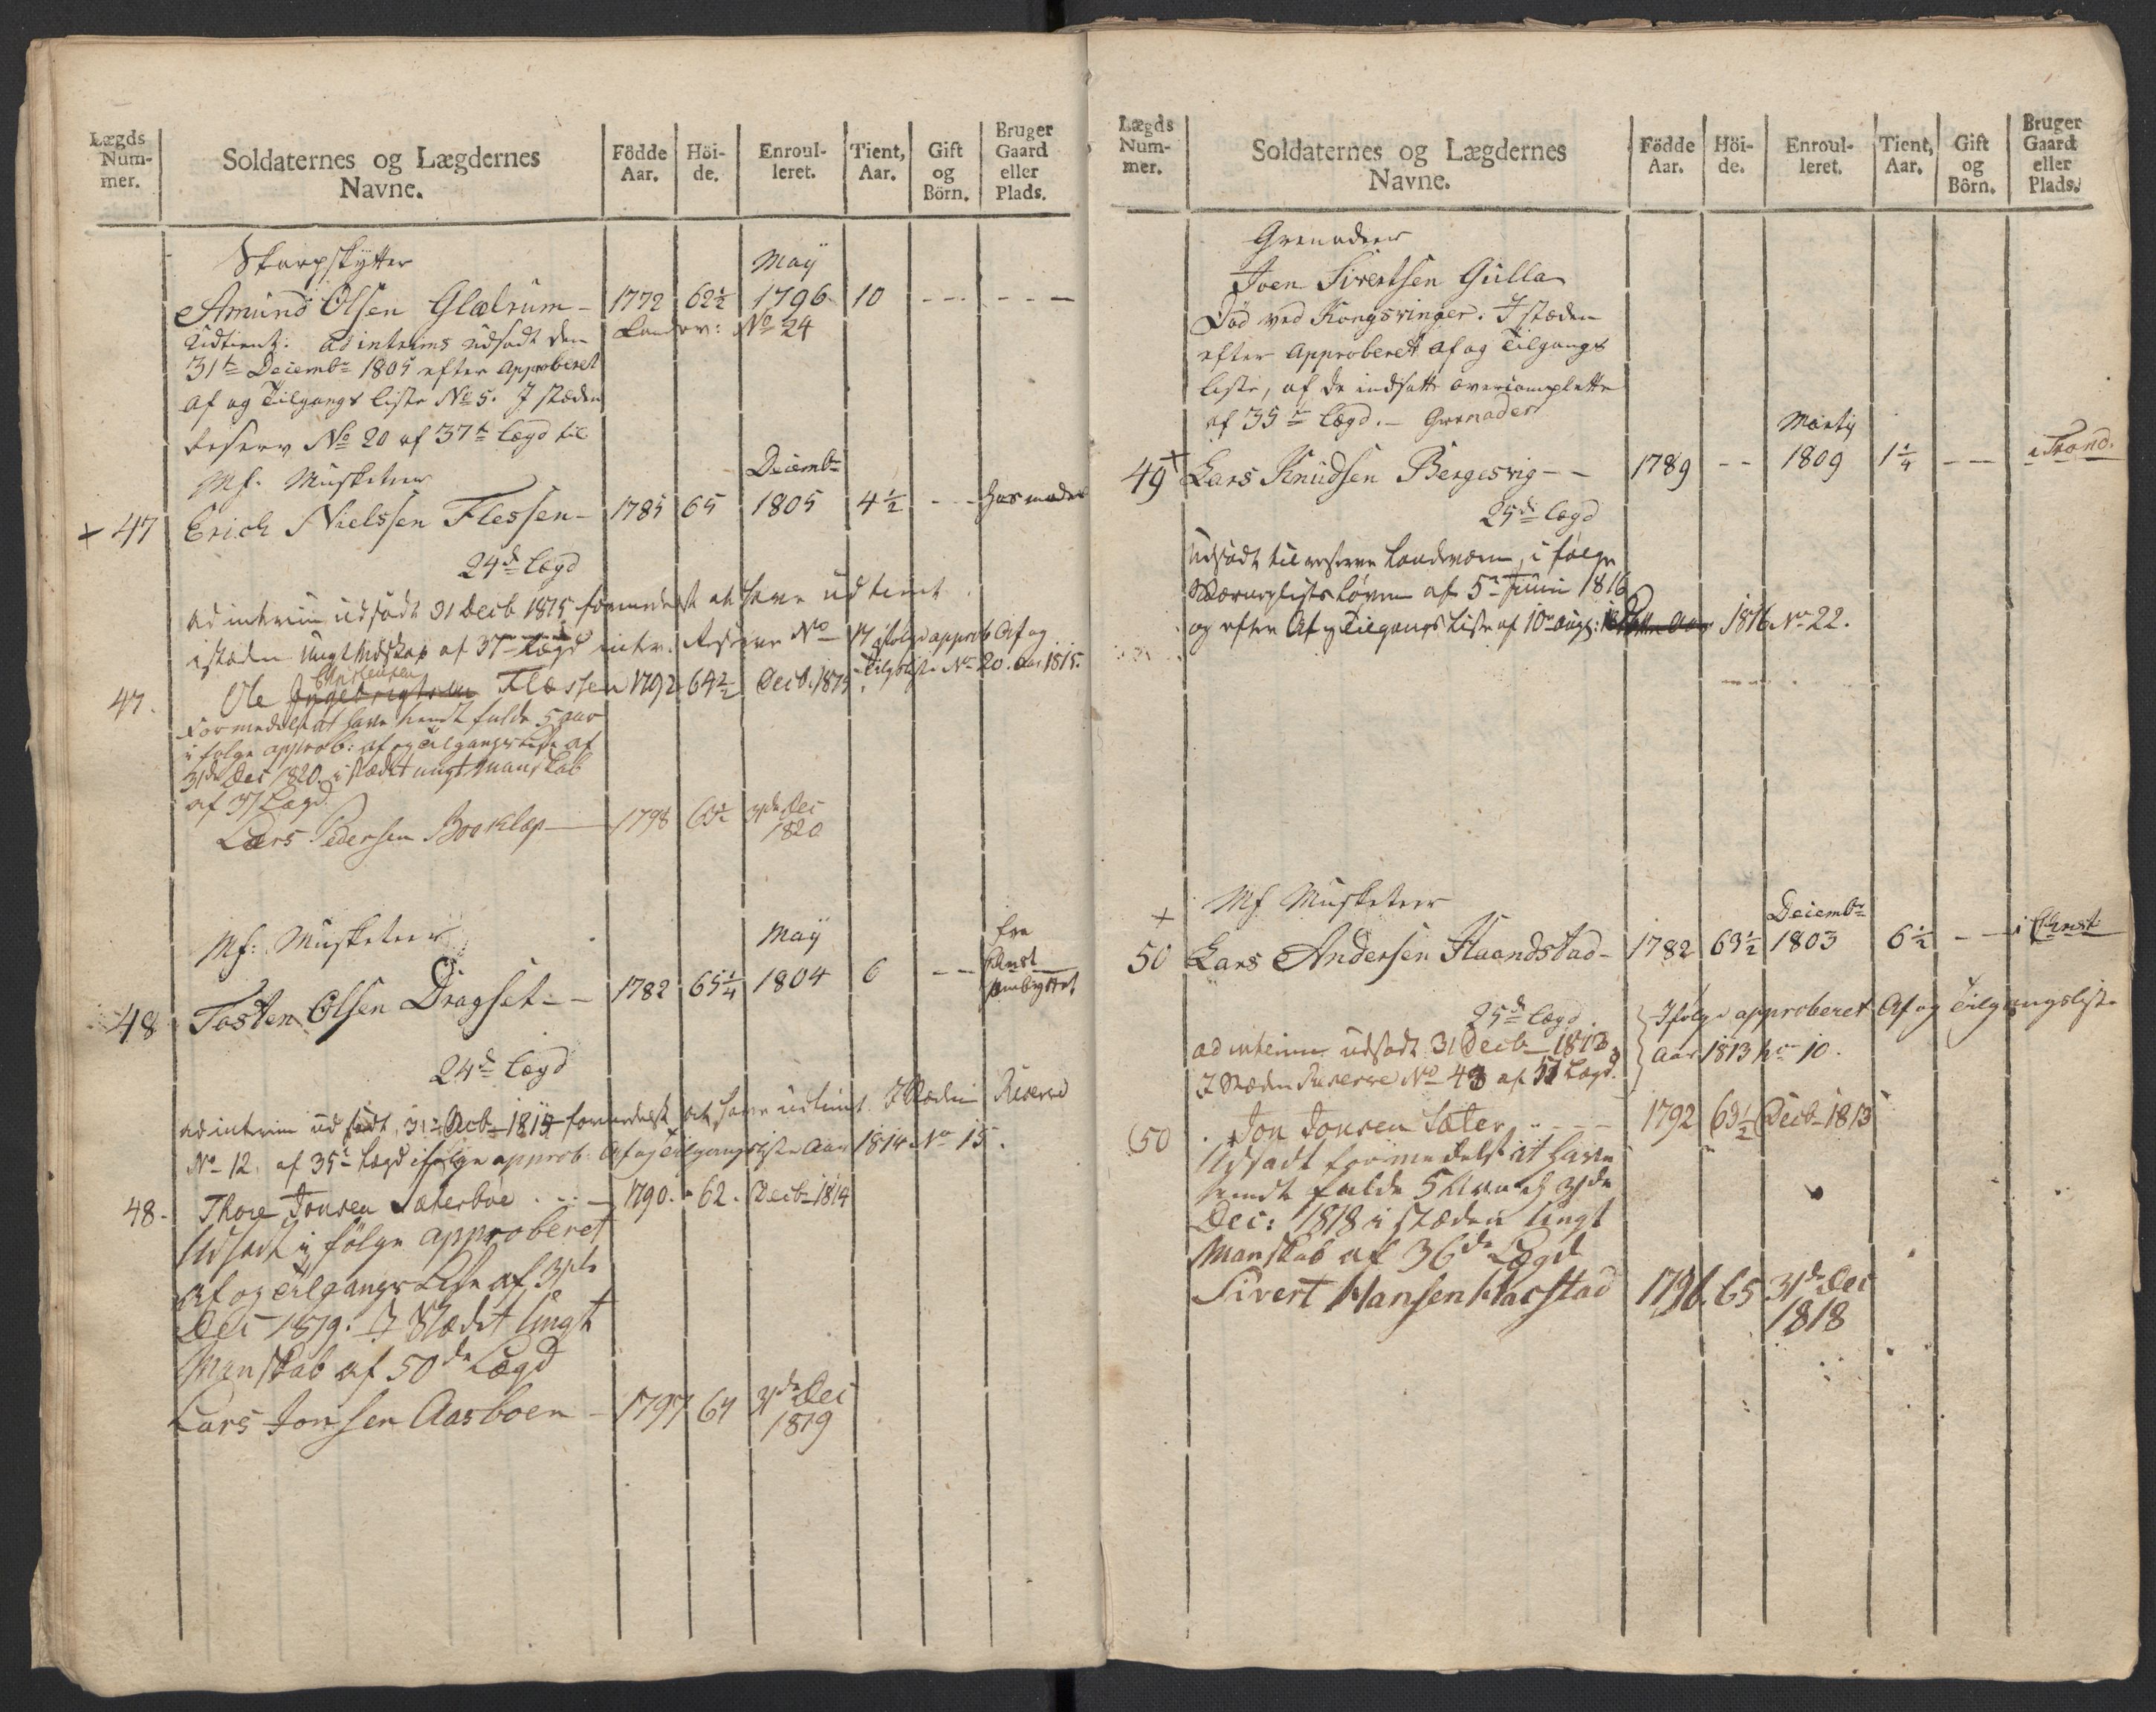 Lægds Num- mer.
Soldaternes og Lægdernes Navne.
Födde Aar.
Höi- de.
Enroul- leret.
Tient, Aar.
Gift og Börn.
Bruger Gaard eller Plads.
Skarpskytter
May
Amund Olsen Glærum - 1772 62½ 1796 10 --- ---
Udtient. ad interims udsadt den Landev: No 24
31te Decembr 1805 efter Approberet
Af og Tilgangs liste No 5. I stæden
Reserv No 20 af 37te Lægd til
Mf. Musketeer
Decembr
+ 47 Erich Nielssen Flessen - 1785 65 1805 4½ --- hos moder
24de Lægd
ad interim udsadt 31 Decb 1815 formedelst at have udtient
istæden ungt Mdskap af 37te Lægd inter. Reserve No 17 ifølge approb Af og
Tilgliste No 20. Aar 1815.
Christensen
47. Ole Ingebrigtsen Flessen 1792 64½ Decb. 1815
Formedelst at have tient fulde 5 aar
i følge approb: af og tilgangsliste af
31de Dec 1820. i stædet ungt manskab
af 37 Lægd
Lars Pedersen Booklep — 1798 65½ 31de Dec
1820
Mf: Musketeer
May
fra
48 Tosten Olsen Dragset -- 1782 65¼ 1804 6 --
24de Lægd
ad interim udsadt, 31te Decb 1814 formedelst at have udtient. I Stæden Reserve
No 12. af 35te Lægd ifølge approb. Af og Tilgangsliste Aar 1814 No 15.
48. Thore Jonsen Sæterbøe . . . 1790. 62. Decb 1814
Udsadt i følge approberet
Af og tilgangsliste af 31de
Dec 1819. I Stædet ungt
Manskab af 50de Lægd
Lars Jonsen Aasboen - 1797 64 31de Dec
1819
Lægds Num- mer.
Soldaternes og Lægdernes Navne.
Födde Aar.
Höi- de.
Enroul- leret.
Tient, Aar.
Gift og Börn.
Bruger Gaard eller Plads.
Grenadeer
Joen Sivertsen Gulla
Död ved Kongsvinger. I stæden
efter Approberet af og Tilgangs
liste, af de indsatte overcomplette
af 35te Lægd. - Grenader
Martij
49 + Lars Knudsen Bergesvig -- 1789 -- 1809 1¼ --- i Trond.
25de Lægd
Udsadt til reserve Landværn, i følge
Værnepligtsloven af 5te Junii 1816
og efter Af og Tilgangs Liste af 10de Augs: 1816 No 22.
Mf Musketeer
Decembr
+ 50 Lars Andersen Haandstad - 1782 63½ 1803 6½ -- i Christ.
25de Lægd
ad interim udsadt 31 Decb 1813. Ifølge approberet Af og Tilgangsliste
I Stæden Reserve No 43 af 51 Lægd. Aar 1813 No 10.
50. Jon Jonsen Sæter ---- 1792 63½ Decb 1813
Udsadt formedelst at have
tient fulde 5 Aar d. 31de
Dec: 1818 i stæden ungt
Manskab af 36de Lægd
Sivert Hansen Harstad 1796. 65 31de Dec
1818